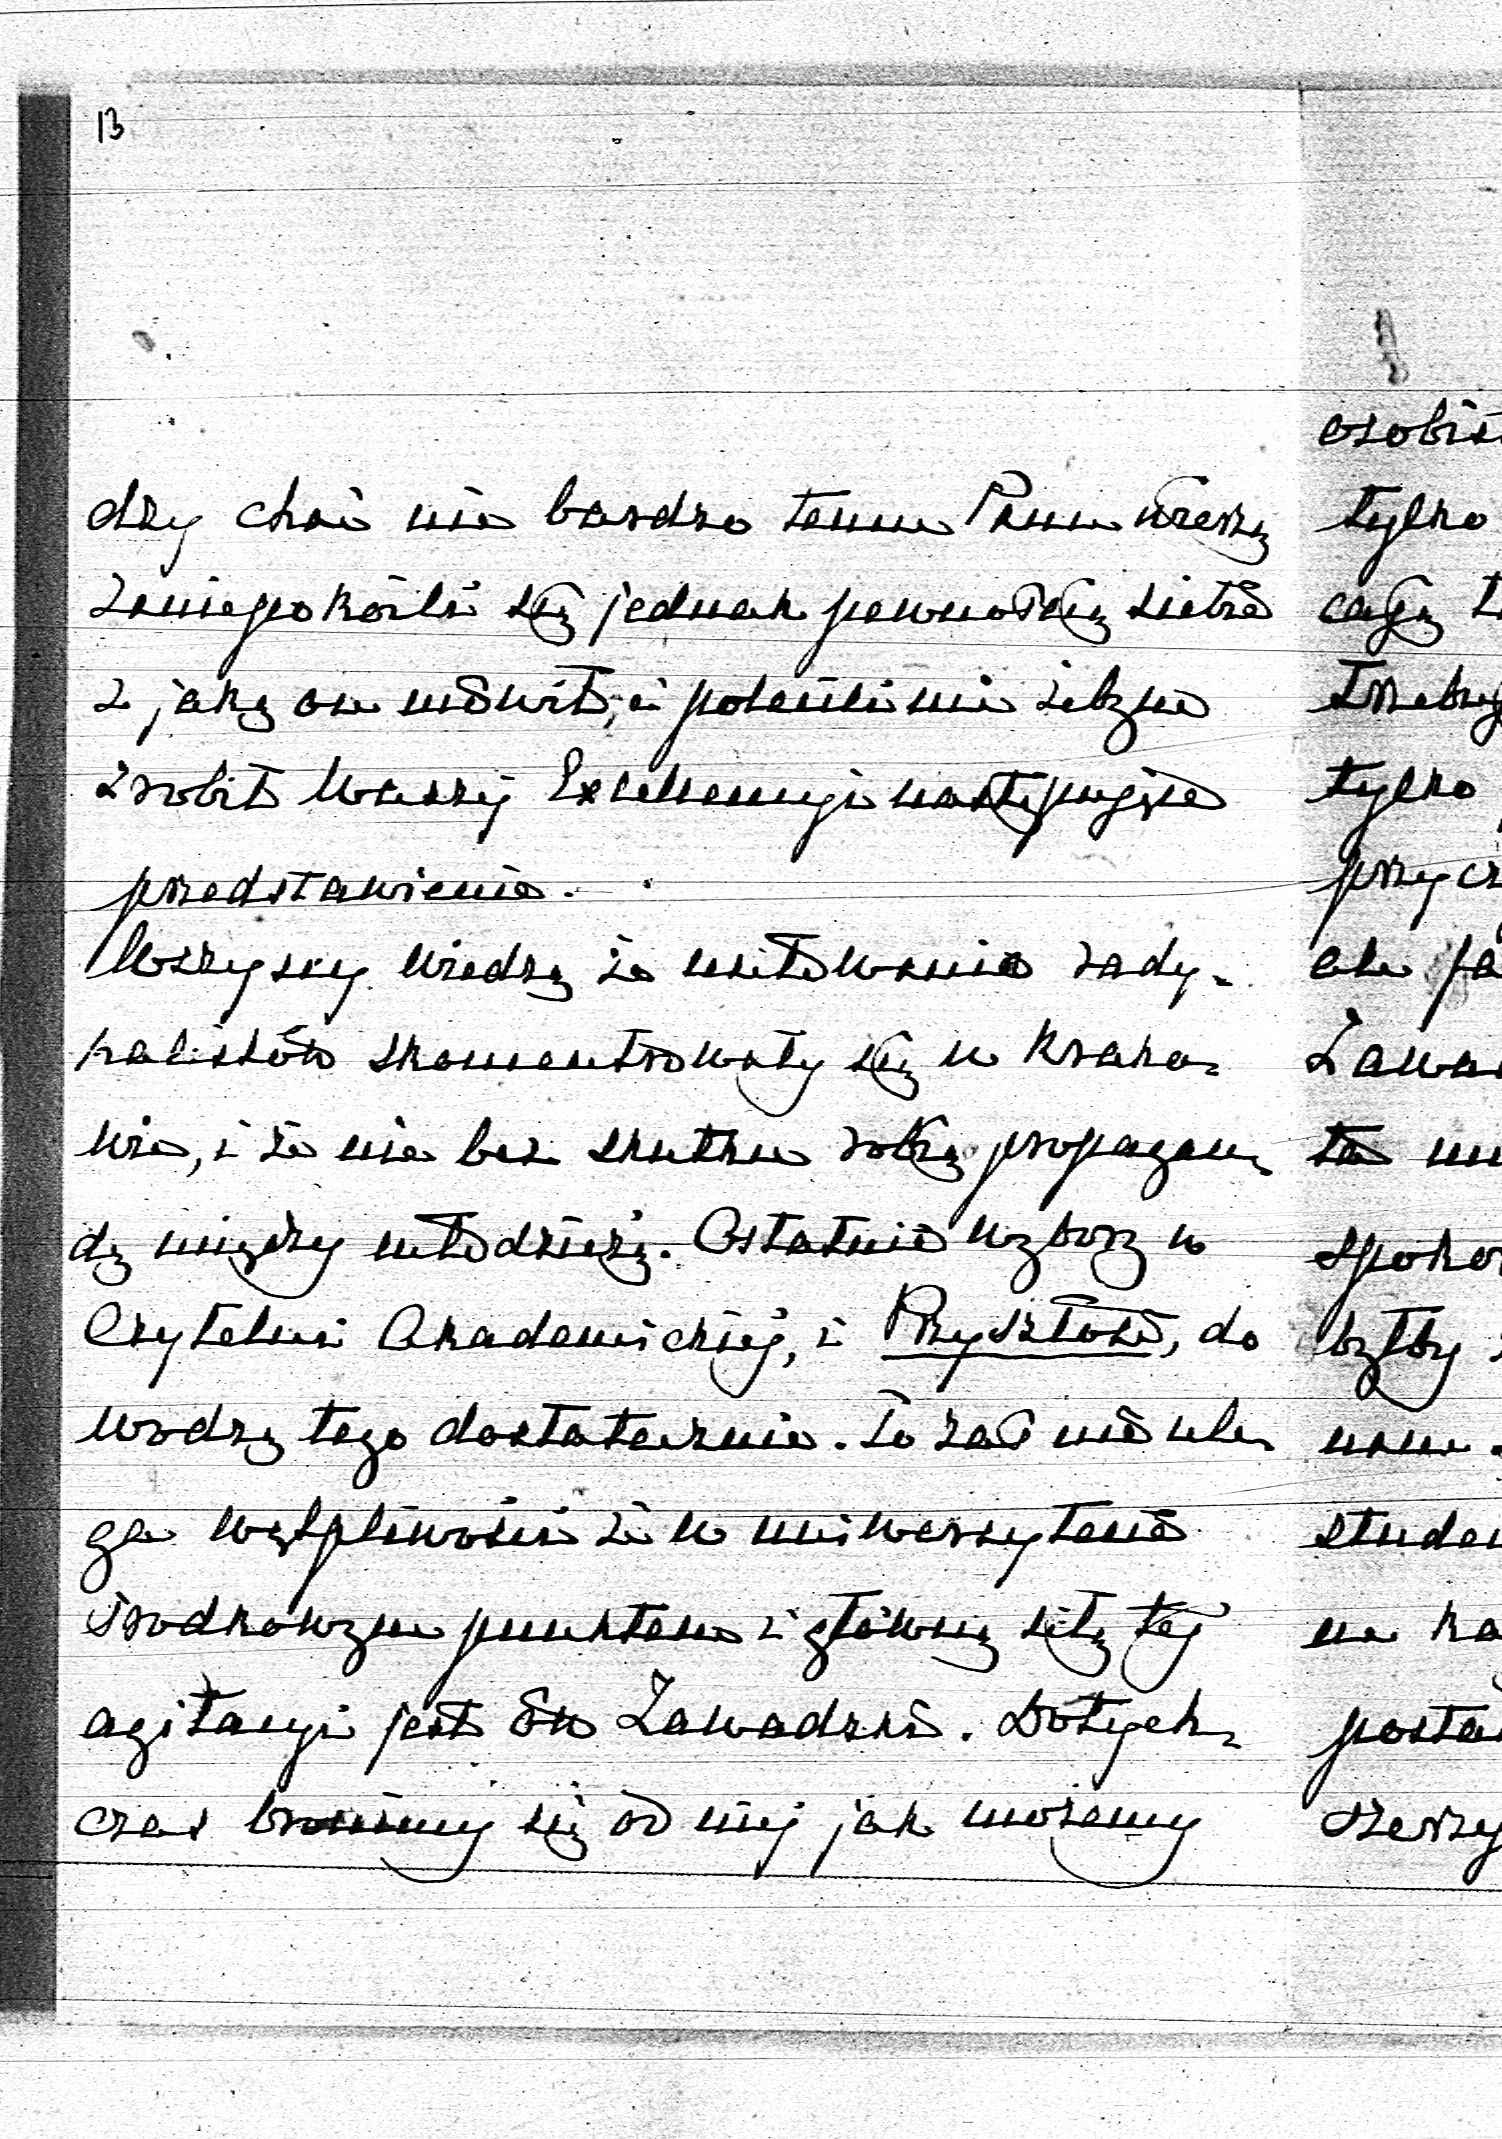 13
dzy choć nie bardzo temu Panu wierzą
zaniepokoili się jednak pewnością siebie
z jaką on mówił, i polecili mi żebym
zrobił Waszej Excellencyi następujące
przedstawienie.
Wszyscy wiedzą że usiłowania rady-
kalistów skoncentrowały się w Krako-
wie, i że nie bez skutku robią propagan-
dę między młodzieżą. Ostatnie wybory w
Czytelni Akademickiej, i Przyszłość, do
wodzą tego dostatecznie. To zaś nie ule-
ga wątpliwości że w uniwersytecie
środkowym punktem i główną siłą tej
agitacyi jest ów Zawadzki. Dotych-
czas bronimy się od niej jak możemy
tylko
całą
tylko
ale
Zawa
ta
byłby
posta